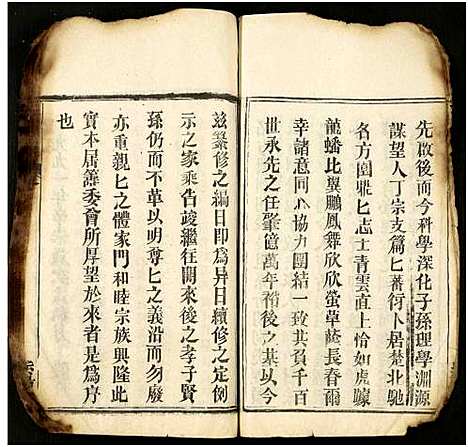 先啟後而今科學深化子孫理學淵源
謀望人丁宗支篇匕著衍卜居楚北馳
名方園雅匕志士青雲直上恰如虎蠔
龍蟠比翼鵬鳳舞欣欣螢草蔭長春爾
幸諸同志協力團結一致共負千百
世承先之任肇億萬年裕後之舉今以
茲纂修之編日即為异日續修之定例
示之家乘告竣繼往開來後之孝子賢
孫仍而不革以明尊匕之義沿而勿廢
亦重親匕之體家門和睦宗族興隆此
實本居譜委會所厚望於來者是為序
也